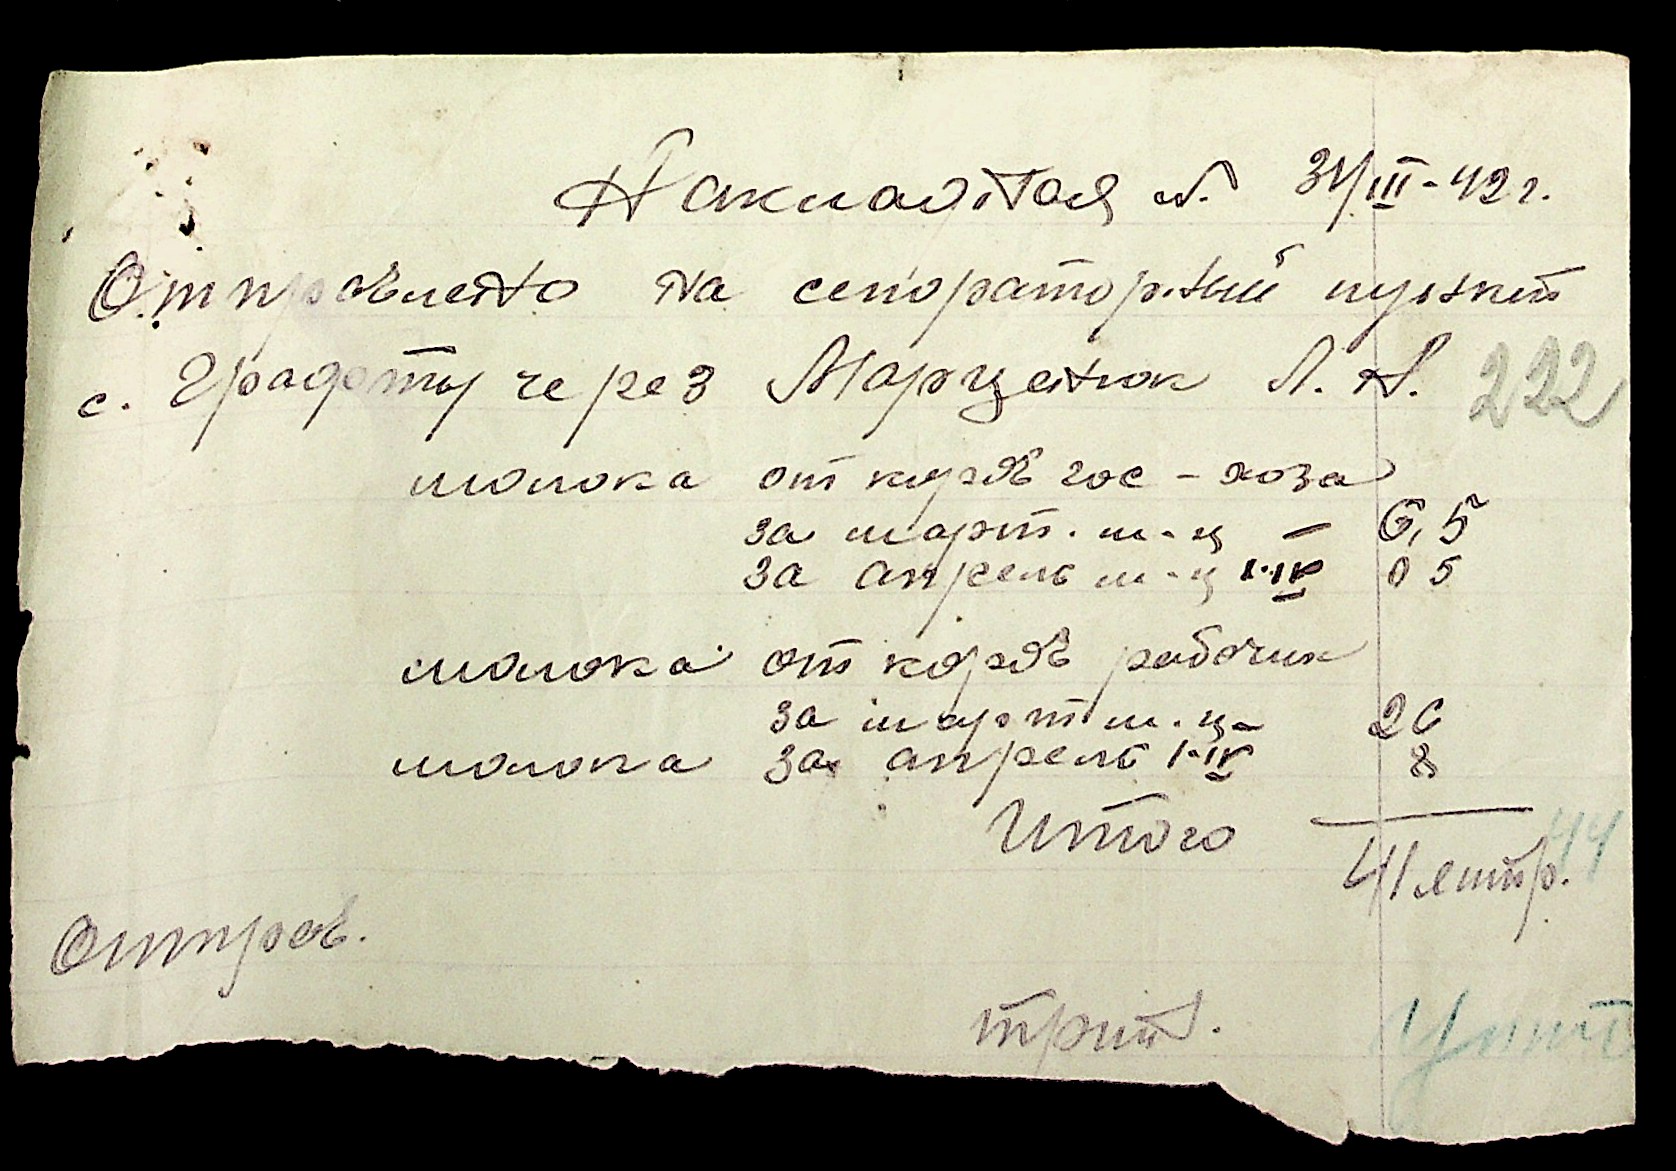 Накладная №. 31/III-42 г.
Отправлено на сепораторный пункт
с. Градоты через Марценюк Л. А.
222
молока от коров гос-хоза
за март. м-ц – 6,5
за апрель м-ц 1·IV 0 5
молока от коров рабочих
за март м.ц– 26
молока за апрель 1·IV 8
Итого 41 литр.
44
Отправ.